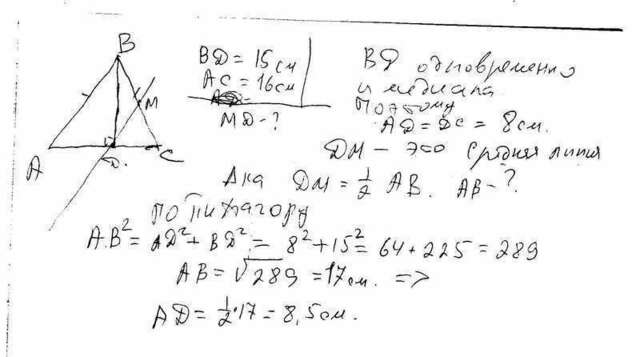 B
M
A
D
C
BD = 15 см
AC = 16 см
MD - ?
BD одновременно
и медиана
поэтому
AD = DC = 8 см.
DM – это средняя линия
DM = 1/2 AB. AB - ?
по Пифагору
AB² = AD² + BD² = 8² + 15² = 64 + 225 = 289
AB = √289 = 17 см. =>
AD = 1/2 · 17 = 8,5 см.